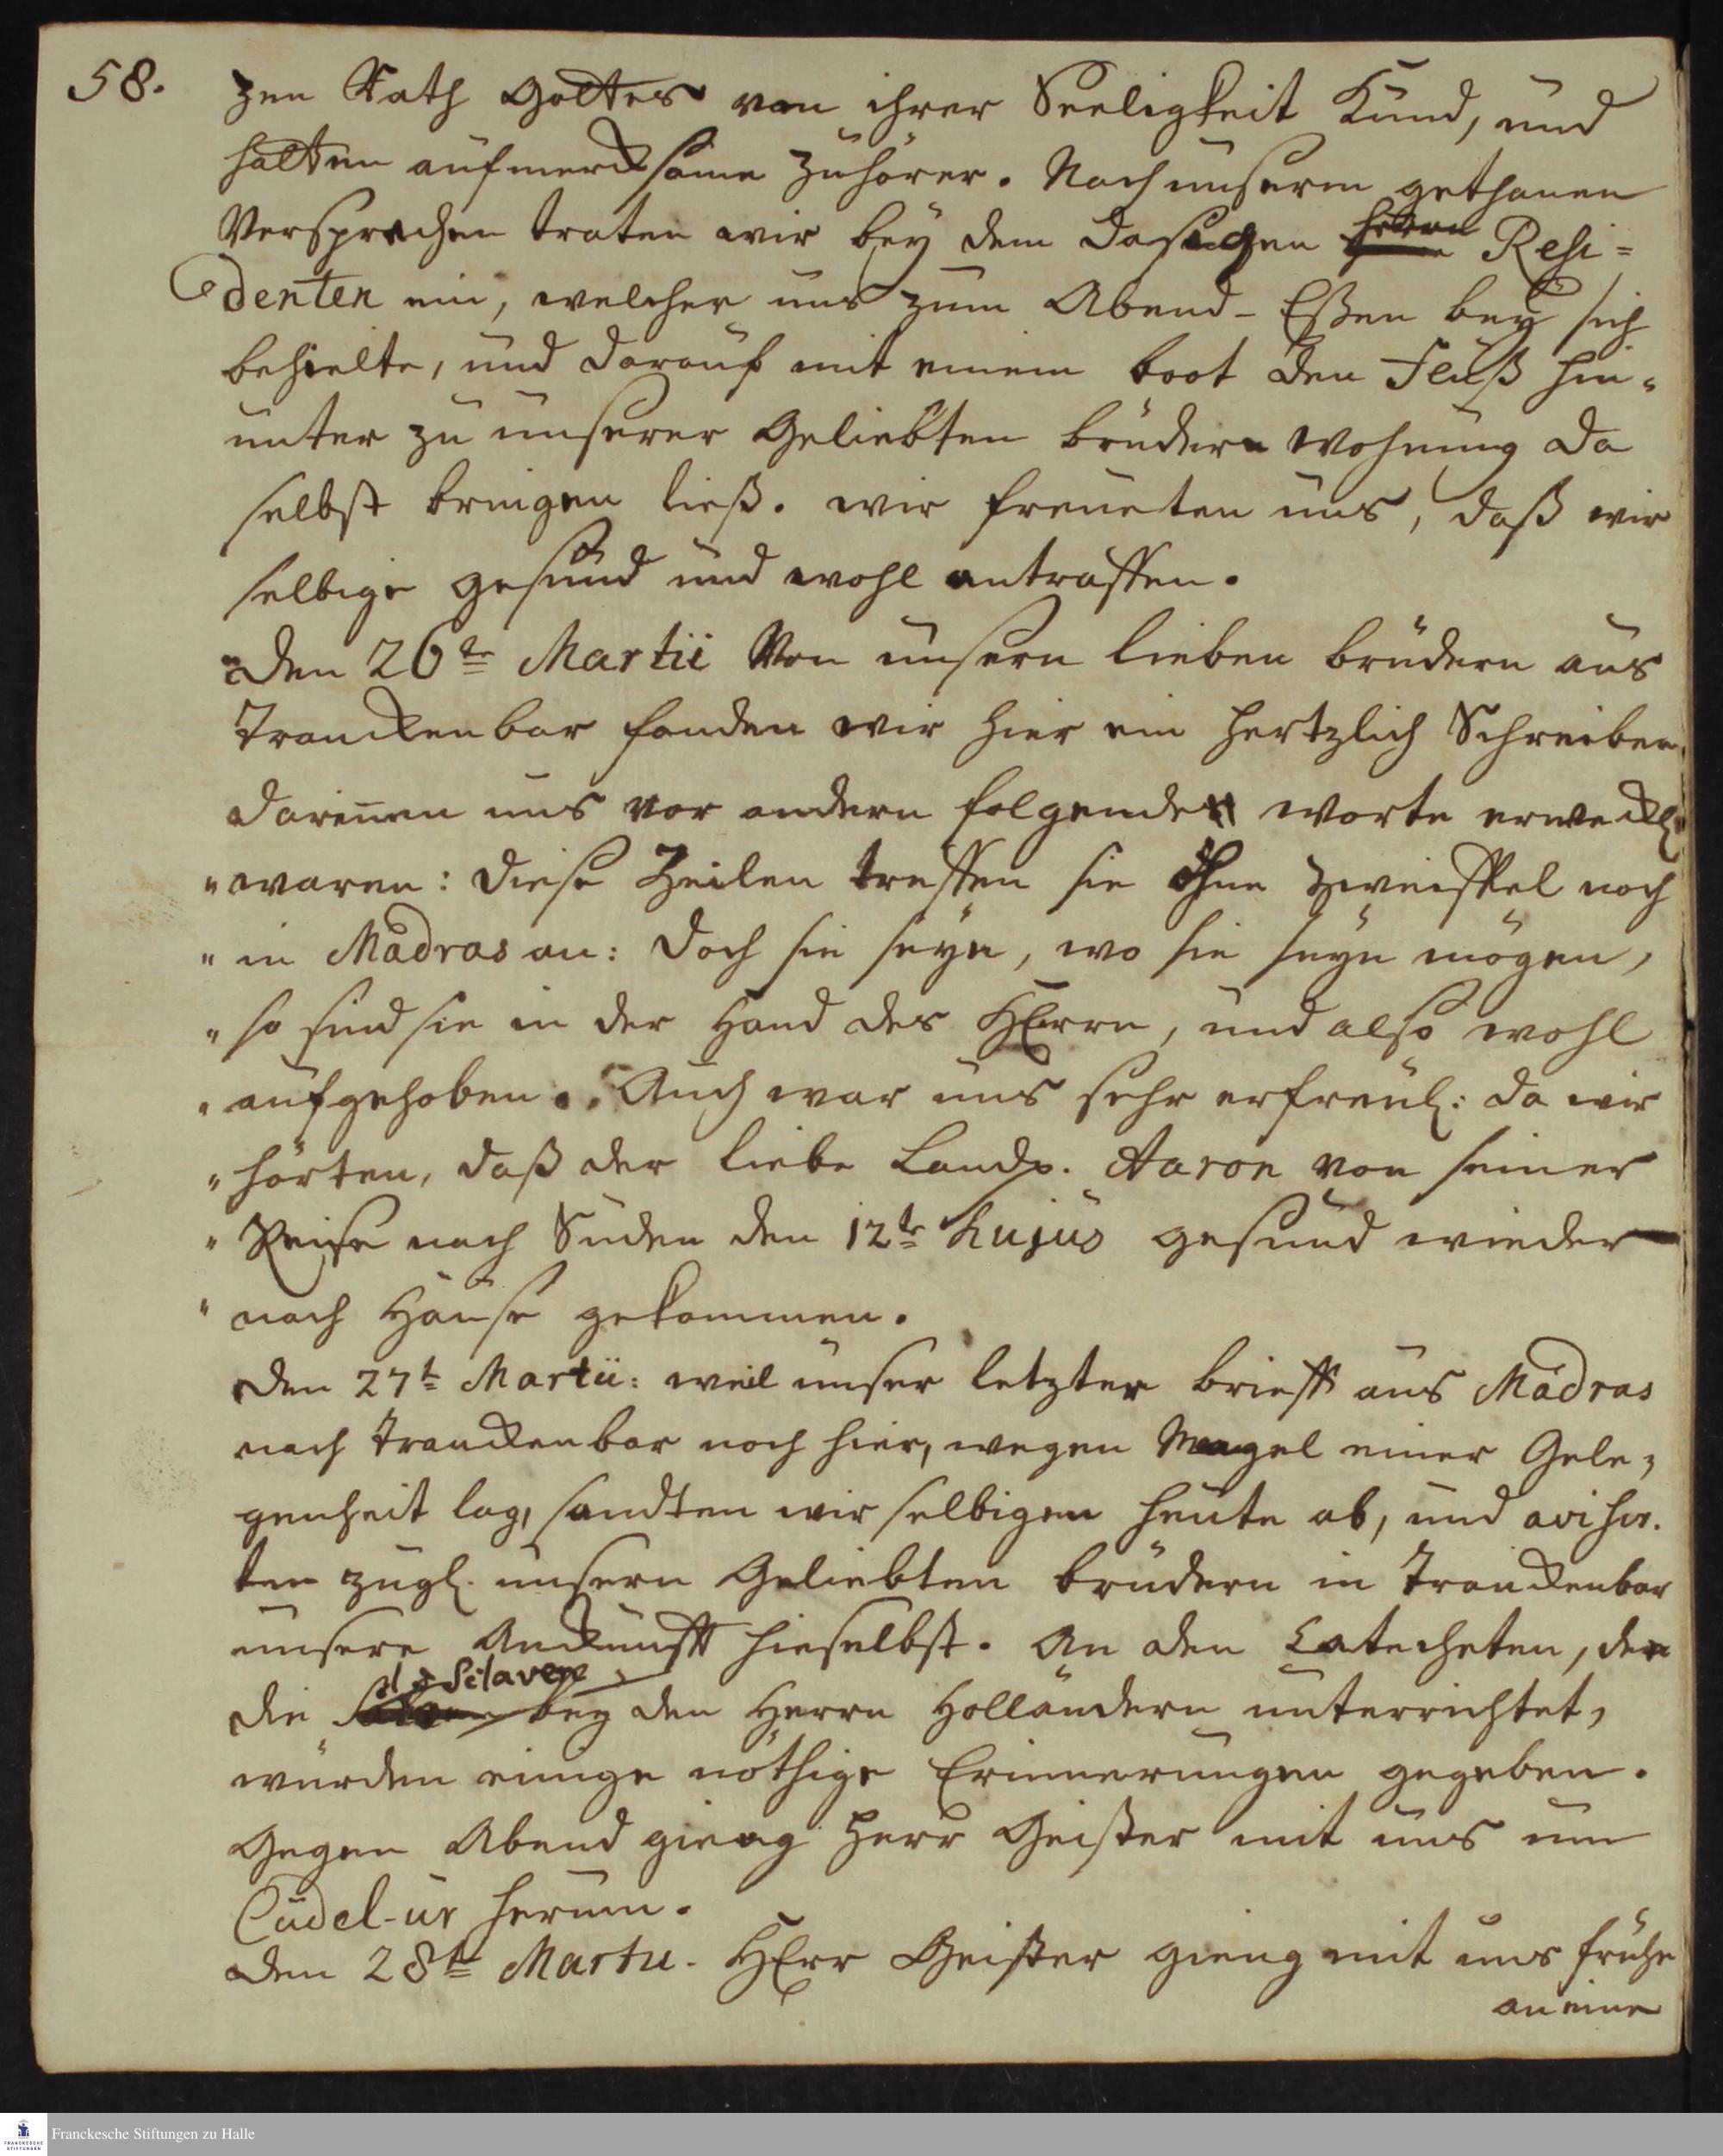 58.
zen Rath Gottes von ihrer Seeligkeit Kund, und
hatten aufmercksame Zuhörer. Nach unserm gethanen
Versprechen traten wir bey dem dasigen Herrn Resi=
denten ein, welcher uns zum Abend-Eßen bey sich
behielte, und darauf mit einem boot den Fluß hin=
unter zu unserer Geliebten brüdern Wohnung da
selbst bringen ließ. wir freueten uns, daß wir
selbige gesund und wohl antraffen.
den 26te Martii Von unsern lieben brüdern aus
Tranckenbar fanden wir hier ein hertzlich Schreiben,
darinnen uns vor andern folgende Worte erweckl.
" waren: diese Zeilen treffen sie ohne Zweiffel noch
" in Madras an: doch sie seyn, wo sie seyn mögen,
" so sind sie in der Hand des HErrn, und also wohl
" aufgehoben. Auch war uns sehr erfreul: da wir
" hörten, daß der liebe Landp. Aaron von seiner
" Reise nach Süden den 12te hujus gesund wieder
" nach Hause gekommen.
den 27t Martii: weil unser letzter brieff aus Madras
nach Tranckenbar noch hier, wegen Mangel einer Gele=
genheit lag, sandten wir selbigen heute ab, und avisir.
ten zugl. unsern Geliebten brüdern in Tranckenbar
unsere Ankunfft hieselbst. An den Catecheten, der
Sclaven
die bey den Herrn Holländern unterrichtet,
wurden einige nöthige Erinnerungen gegeben.
Gegen Abend gieng Herr Geister mit uns um
Cudel-ur herum.
den 28te Martii. HErr Geister gieng mit uns frühe
an eine
Franckesche Stiftungen zu Halle